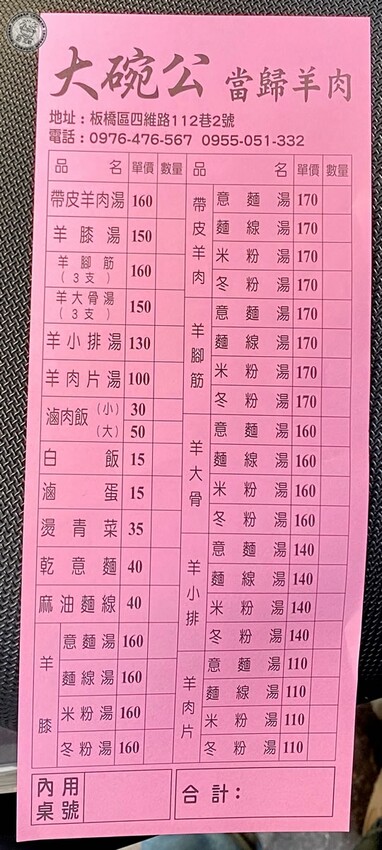 大碗公 當歸羊肉
地址：板橋區四維路112巷2號
電話：0976-476-567 0955-051-332
品名 單價 數量
帶皮羊肉湯 160
羊膝湯 150
羊腳筋（3支） 160
羊大骨湯（3支） 150
羊小排湯 130
羊肉片湯 100
滷肉飯（小） 30
（大） 50
白飯 15
滷蛋 15
燙青菜 35
乾意麵 40
麻油麵線 40
羊膝
意麵湯 160
麵線湯 160
米粉湯 160
冬粉湯 160
品名 單價 數量
帶皮羊肉
意麵湯 170
麵線湯 170
米粉湯 170
冬粉湯 170
羊腳筋
意麵湯 170
麵線湯 170
米粉湯 170
冬粉湯 170
羊大骨
意麵湯 160
麵線湯 160
米粉湯 160
冬粉湯 160
羊小排
意麵湯 140
麵線湯 140
米粉湯 140
冬粉湯 140
羊肉片
意麵湯 110
麵線湯 110
米粉湯 110
冬粉湯 110
內用桌號
合計：